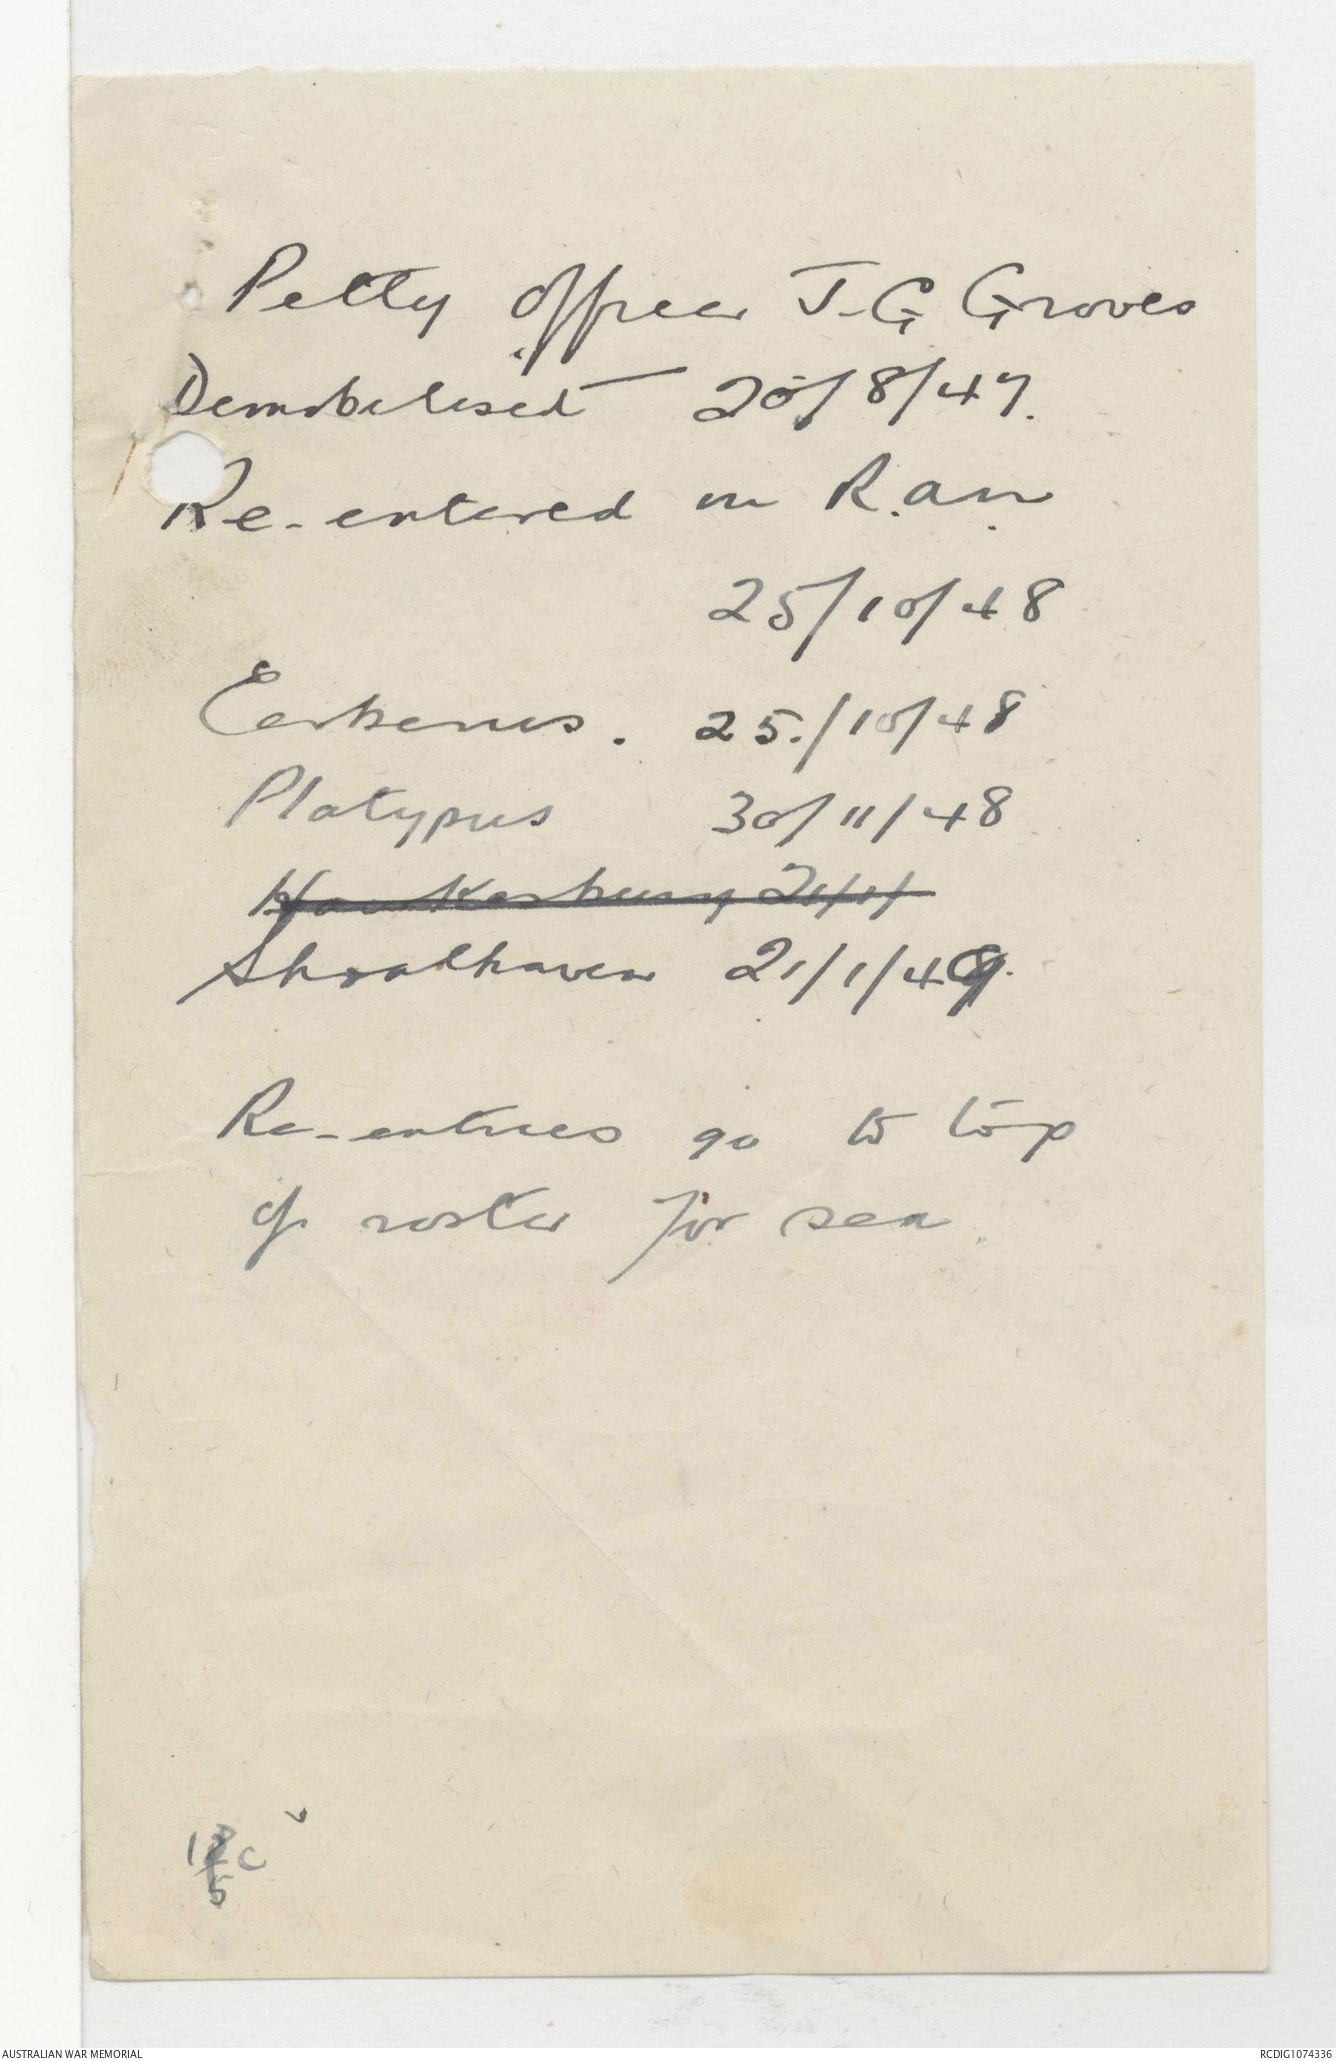 Petty Officer J-G Groves
Demobilised 20/8/47.
Re-entered in R.A.N.
25/10/48
Cerberus. 25./10/48
Platypus 30/11/48
Hawkesbury 21/1/
Shoalhaven 21/1/49.
Re-entries go to top
of roster for sea.
AUSTRALIAN WAR MEMORIAL
RCDIG1074336